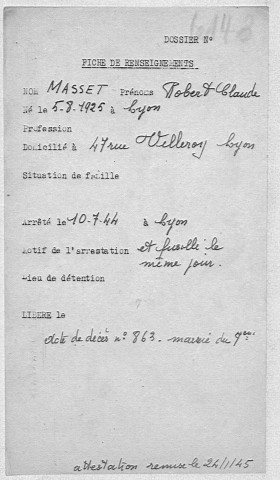 6148
DOSSIER N°
FICHE DE RENSEIGNEMENTS
NOM MASSET Prénoms Robert Claude
Né le 5-8-1925 à Lyon
Profession
Domicilié à 47 rue Villeroy Lyon
Situation de famille
Arrêté le 10-7-44 à Lyon
Motif de l'arrestation et fusillé le
même jour.
Lieu de détention
LIBERE le
Acte de décès n° 863 - mairie du 7ème
attestation remise le 24/1/45